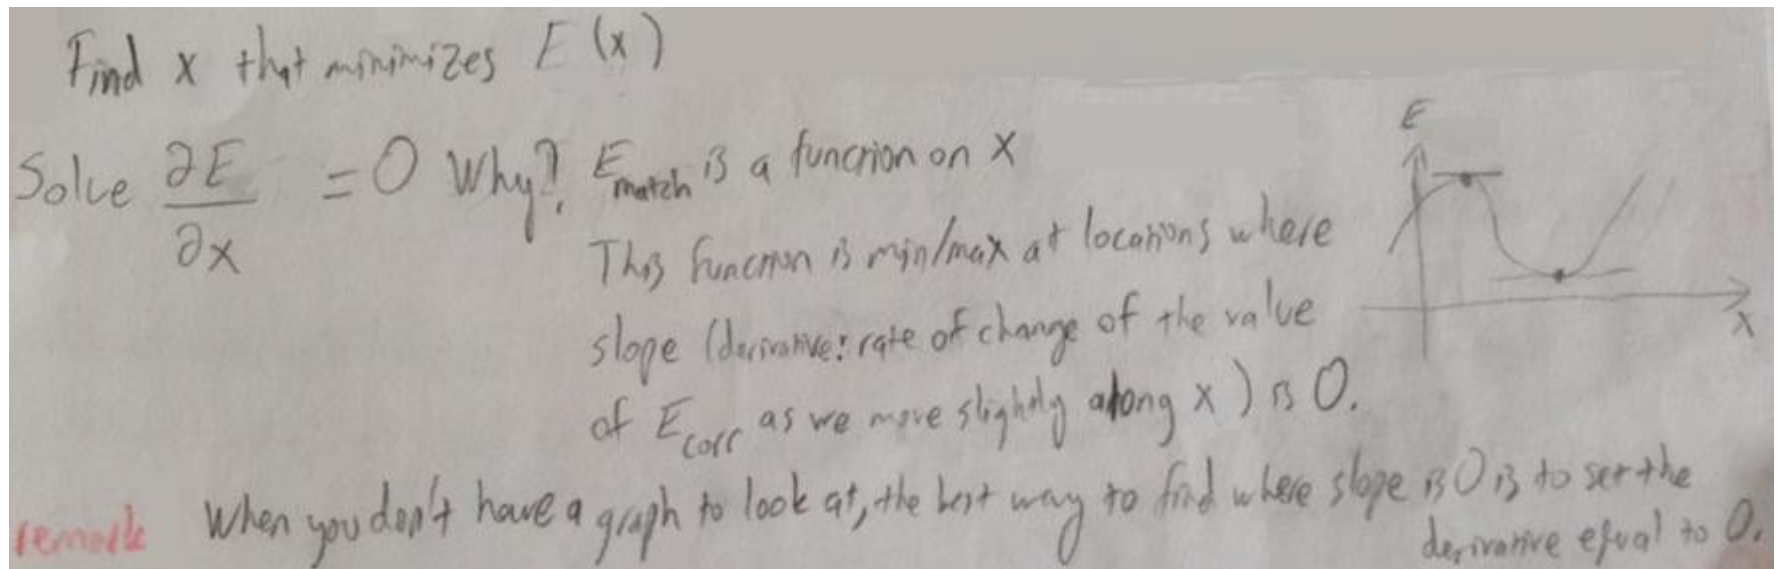 Find x that minimizes E(x)
Solve ∂E/∂x = 0 Why? E_match is a function on x
This function is min/max at locations where
slope (derivative: rate of change of the value
of E_corr as we move slightly along x) is 0.
E
x
remark When you don't have a graph to look at, the best way to find where slope is 0 is to set the
derivative equal to 0.